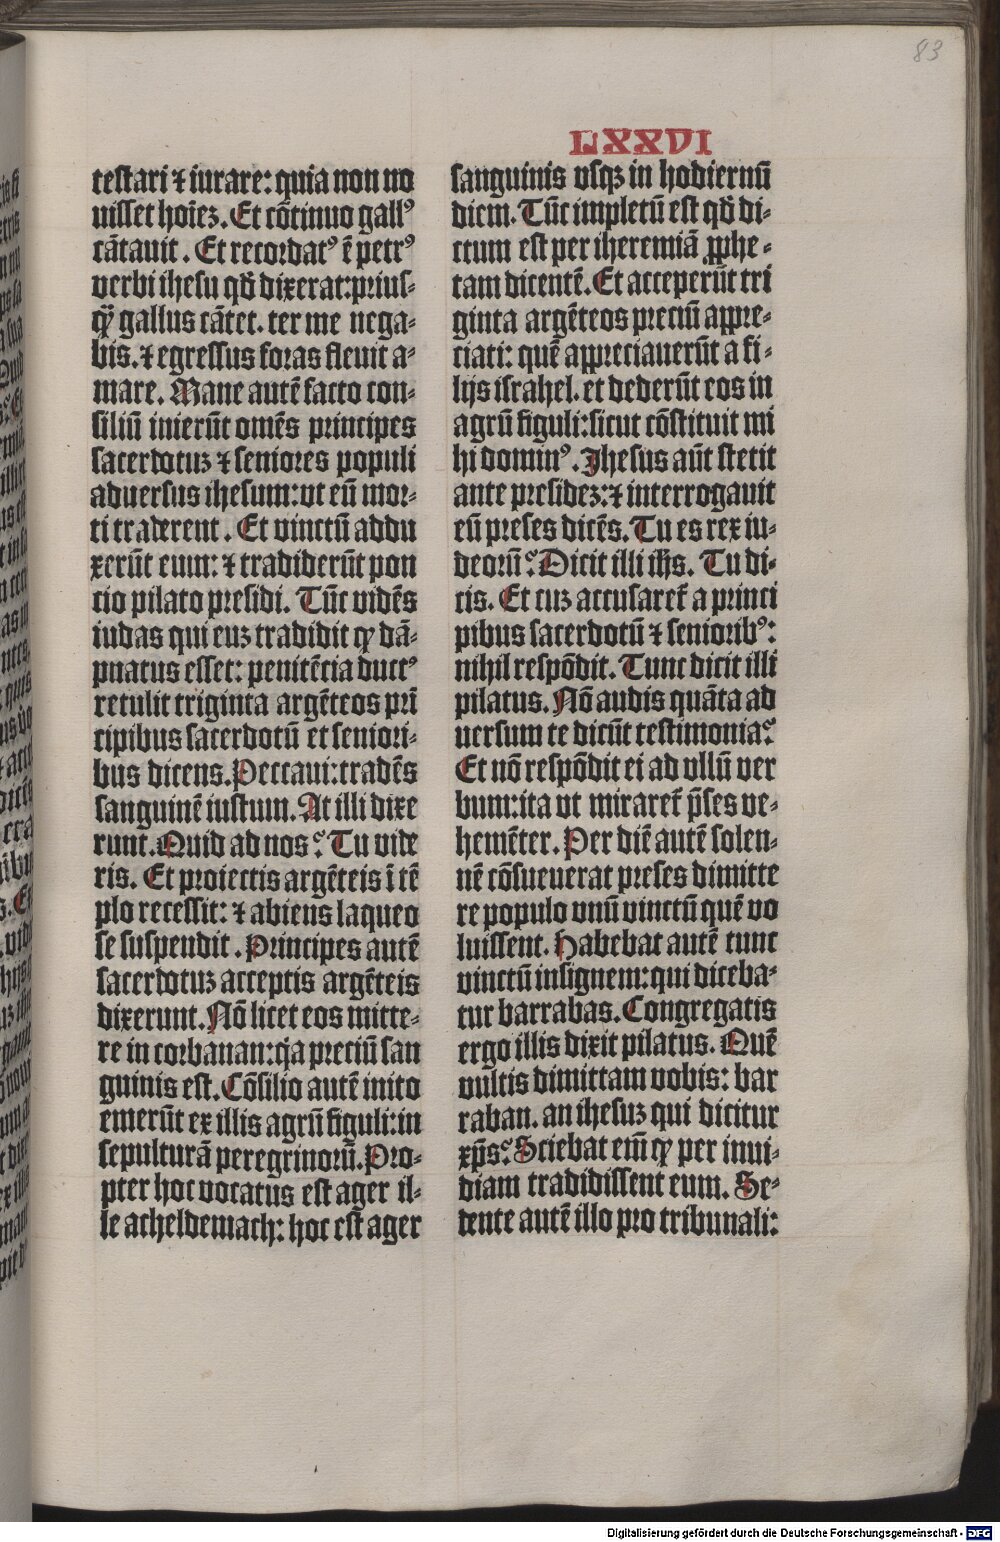 83
LXXVI
testari ⁊ iurare: quia non no
uisset hoīez. Et cōtinuo gallꝰ
cātauit. Et recordatꝰ ē petrꝰ
verbi ihesu qđ dixerat: prius⸗
qͣꝫ gallus cātet. ter me nega⸗
bis. ⁊ egressus foras fleuit a⸗
mare. Mane autē facto con⸗
siliū inierūt omēs principes
sacerdotuz ⁊ seniores populi
aduersus ihesum: vt eū mor⸗
ti traderent. Et vinctū addu
xerūt eum: ⁊ tradiderūt pon
cio pilato presidi. Tūc vidēs
iudas qui euz tradidit ꝙ dā⸗
pnatus esset: penitēcia ductꝰ
retulit triginta argēteos prī
cipibus sacerdotū et seniori⸗
bus dicens. Peccaui: tradēs
sanguinē iustum. At illi dixe
runt. Quid ad nos? Tu vide
ris. Et proiectis argēteis ī tē
plo recessit: ⁊ abiens laqueo
se suspendit. Principes autē
sacerdotuz acceptis argēteis
dixerunt. Nō licet eos mitte⸗
re in corbanan: qͥa preciū san
guinis est. Cōsilio autē inito
emerūt ex illis agrū figuli: in
sepulturā peregrinorū. Pro⸗
pter hoc vocatus est ager il⸗
le acheldemach: hoc est ager
sanguinis vsqꝫ in hodiernū
diem. Tūc impletū est qđ di⸗
ctum est per iheremiā ꝓphe⸗
tam dicentē. Et acceperūt tri
ginta argēteos preciū appre⸗
ciati: quē appreciauerūt a fi⸗
lijs israhel. et dederūt eos in
agrū figuli: sicut cōstituit mi
hi dominꝰ. Jhesus aūt stetit
ante presidez: ⁊ interrogauit
eū preses dicēs. Tu es rex iu⸗
deorū? Dicit illi ihs. Tu di⸗
cis. Et cuz accusaret̄ a princi
pibus sacerdotū ⁊ senioribꝰ:
nihil respōdit. Tunc dicit illi
pilatus. Nō audis quāta ad
uersum te dicūt testimonia?
Et nō respōdit ei ad vllū ver
bum: ita vt miraret̄ p̄ses ve⸗
hemēter. Per diē autē solen⸗
nē cōsueuerat preses dimitte
re populo vnū vinctū quē vo
luissent. Habebat autē tunc
vinctū insignem: qui diceba⸗
tur barrabas. Congregatis
ergo illis dixit pilatus. Quē
vultis dimittam vobis: bar
raban. an ihesuz qui dicitur
xp̄s? Sciebat em̄ ꝙ per inui⸗
diam tradidissent eum. Se⸗
dente autē illo pro tribunali:
Digitalisierung gefördert durch die Deutsche Forschungsgemeinschaft - DFG